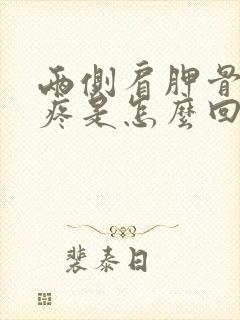 兩側肩胛骨
疼是怎麼回
裴泰日